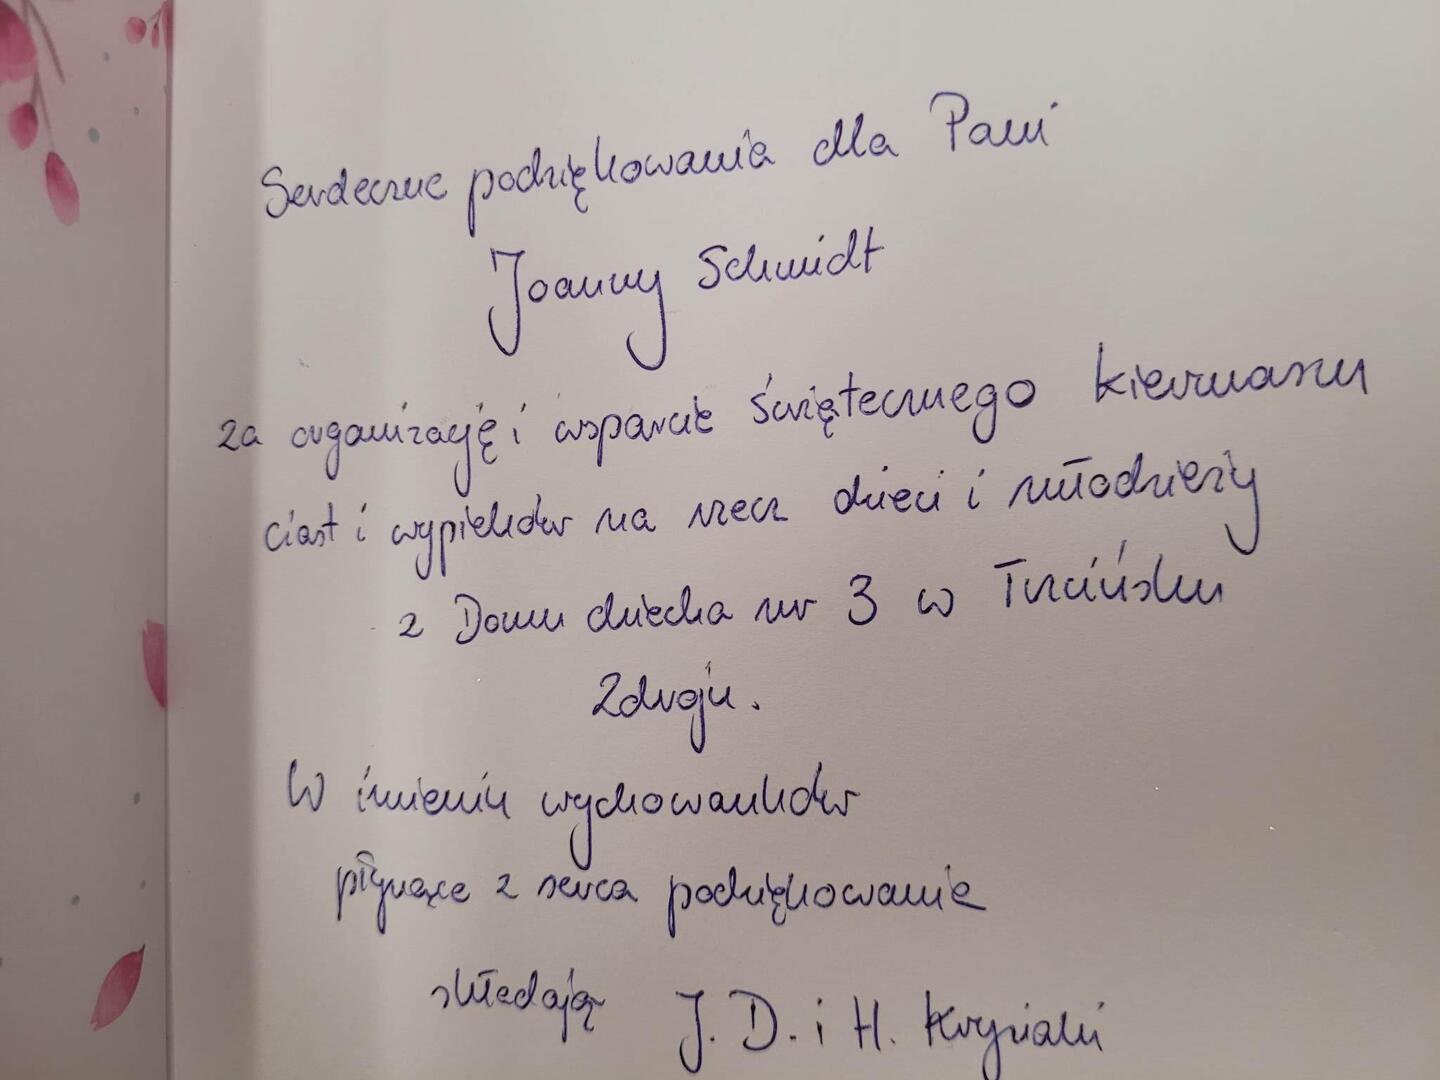 Serdeczne podziękowania dla Pani
Joanny Schmidt
za organizację i wsparcie świątecznego kiermaszu
ciast i wypieków na rzecz dzieci i młodzieży
z Domu dziecka nr 3 w Trzcińsku
Zdroju.
W imieniu wychowanków
płynące z serca podziękowanie
składają J. D. i H.